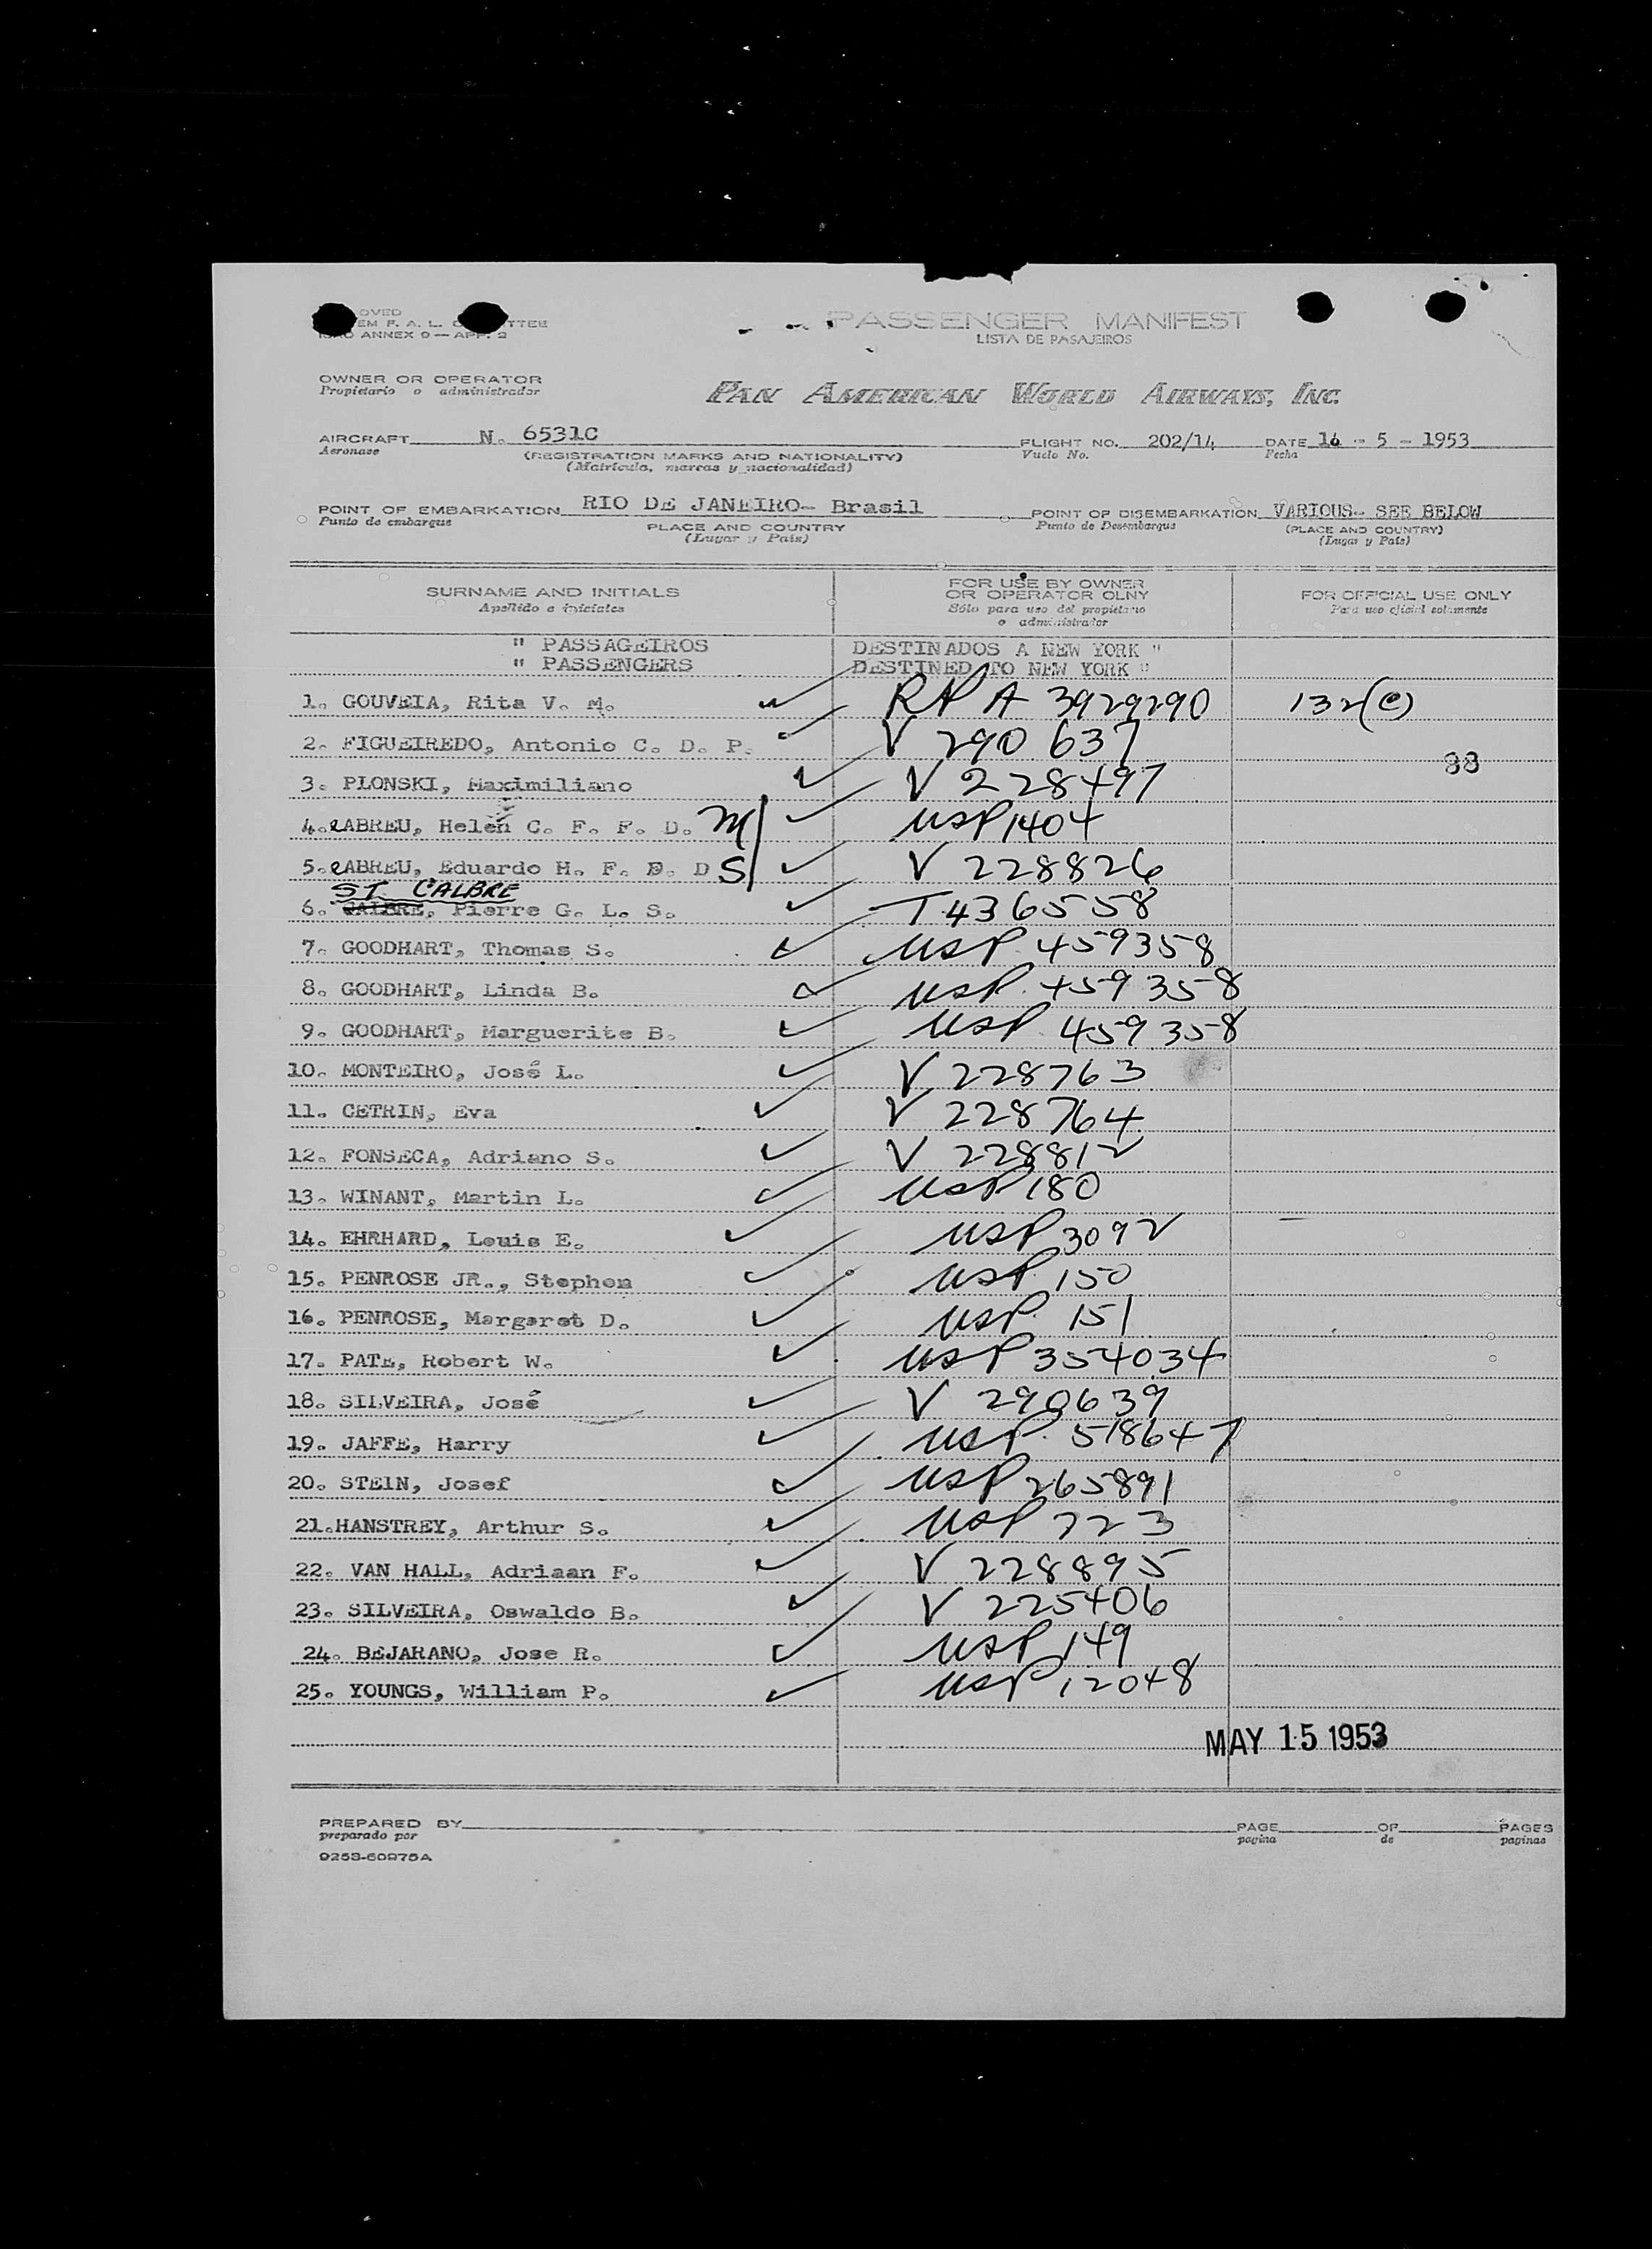 OVED
EM F. A. L. C TTEE
ICAO ANNEX 9 — APP. 2
PASSENGER MANIFEST
LISTA DE PASAJEIROS
OWNER OR OPERATOR
Propietario o administrador
PAN AMERICAN WORLD AIRWAYS, INC.
AIRCRAFT N. 6531C FLIGHT NO. 202/14 DATE 14 - 5 - 1953
Aeronave (REGISTRATION MARKS AND NATIONALITY) Vuelo No. Fecha
(Matrícula, marcas y nacionalidad)
POINT OF EMBARKATION RIO DE JANEIRO- Brasil POINT OF DISEMBARKATION VARIOUS- SEE BELOW
Punto de embarque PLACE AND COUNTRY Punto de Desembarque (PLACE AND COUNTRY)
(Lugar y País) (Lugar y País)
SURNAME AND INITIALS FOR USE BY OWNER OR OPERATOR OLNY FOR OFFICIAL USE ONLY
Apellido e iniciales Sólo para uso del propietario o administrador Para uso oficial solamente
" PASSAGEIROS DESTINADOS A NEW YORK "
" PASSENGERS DESTINED TO NEW YORK "
1. GOUVEIA, Rita V. M. RP A 3929290 132(e)
2. FIGUEIREDO, Antonio C. D. P. V 290 637
33
3. PLONSKI, Maximiliano V 228497
4. ABREU, Helen C. F. F. D. M USP 1404
5. ABREU, Eduardo H. F. F. D S V 228826
ST. CALBRE
6. CALBRE, Pierre G. L. S. T 436558
7. GOODHART, Thomas S. USP 459358
8. GOODHART, Linda B. USP 459358
9. GOODHART, Marguerite B. USP 459358
10. MONTEIRO, José L. V 228763
11. CETRIN, Eva V 228764
12. FONSECA, Adriano S. V 228812
13. WINANT, Martin L. USP 180
14. EHRHARD, Louis E. USP 3092
15. PENROSE JR., Stephen USP 150
16. PENROSE, Margaret D. USP 151
17. PATE, Robert W. USP 354034
18. SILVEIRA, José V 290639
19. JAFFE, Harry USP 518647
20. STEIN, Josef USP 265891
21. HANSTREY, Arthur S. USP 723
22. VAN HALL, Adriaan F. V 228895
23. SILVEIRA, Oswaldo B. V 225406
24. BEJARANO, Jose R. USP 149
25. YOUNGS, William P. USP 12048
MAY 15 1953
PREPARED BY PAGE OF PAGES
preparado por pagina de paginas
9253-60975A